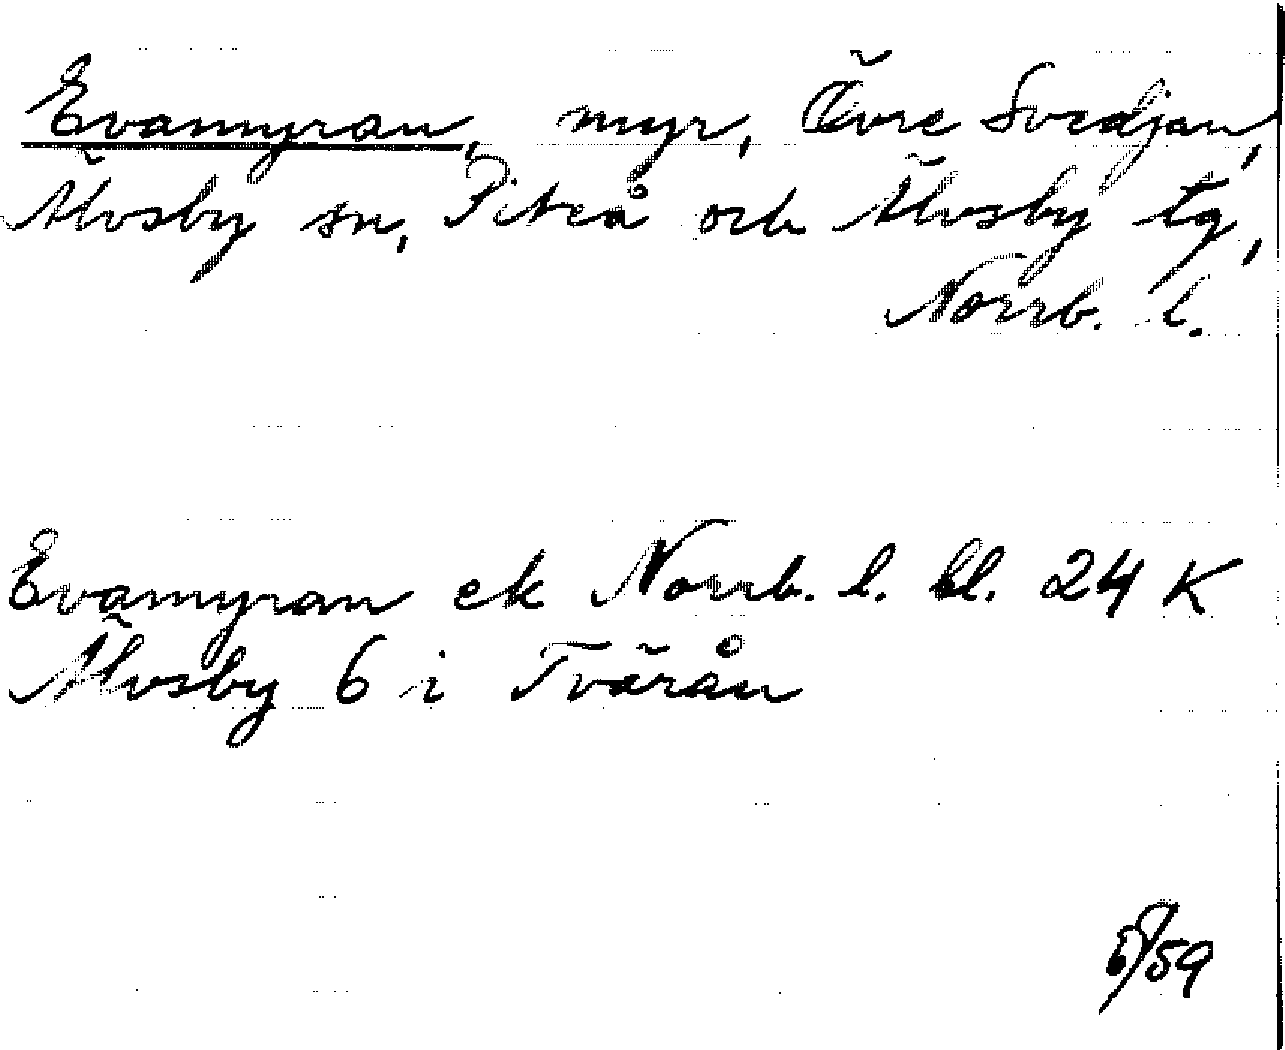 Evamyran, myr, Övre Svedjan,
Älvsby sn, Piteå och Älvsby tg,
Norrb. l.
Evamyran ek Norrb. l. bl. 24 K
Älvsby 6 i Tvärån
6/59